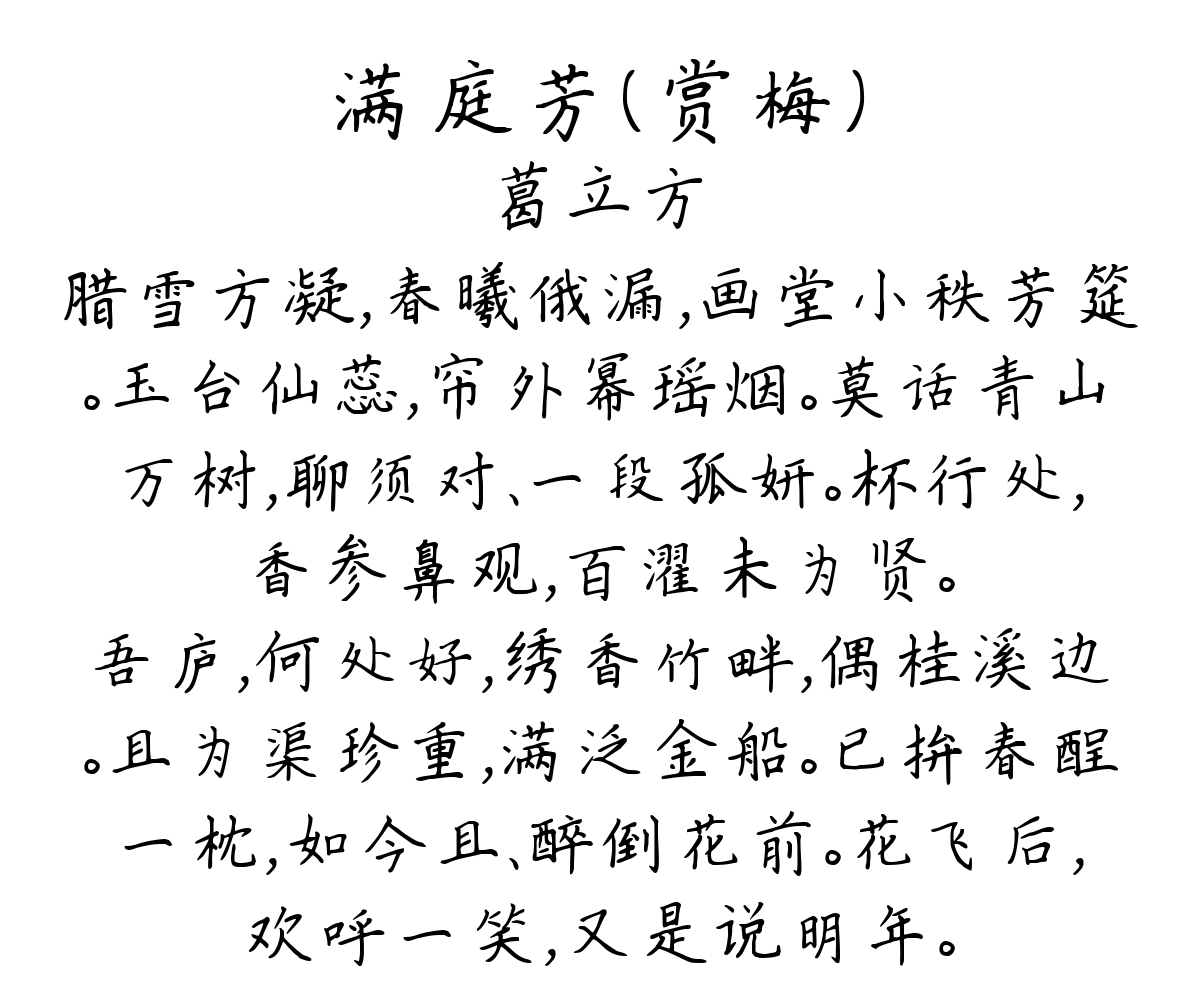 满庭芳(赏梅)
葛立方
腊雪方凝,春曦俄漏,画堂小秩芳筵
。玉台仙蕊,帘外幂瑶烟。莫话青山
万树,聊须对、一段孤妍。杯行处,
香参鼻观,百濯未为贤。
吾庐,何处好,绣香竹畔,偶桂溪边
。且为渠珍重,满泛金船。已拚春酲
一枕,如今且、醉倒花前。花飞后,
欢呼一笑,又是说明年。